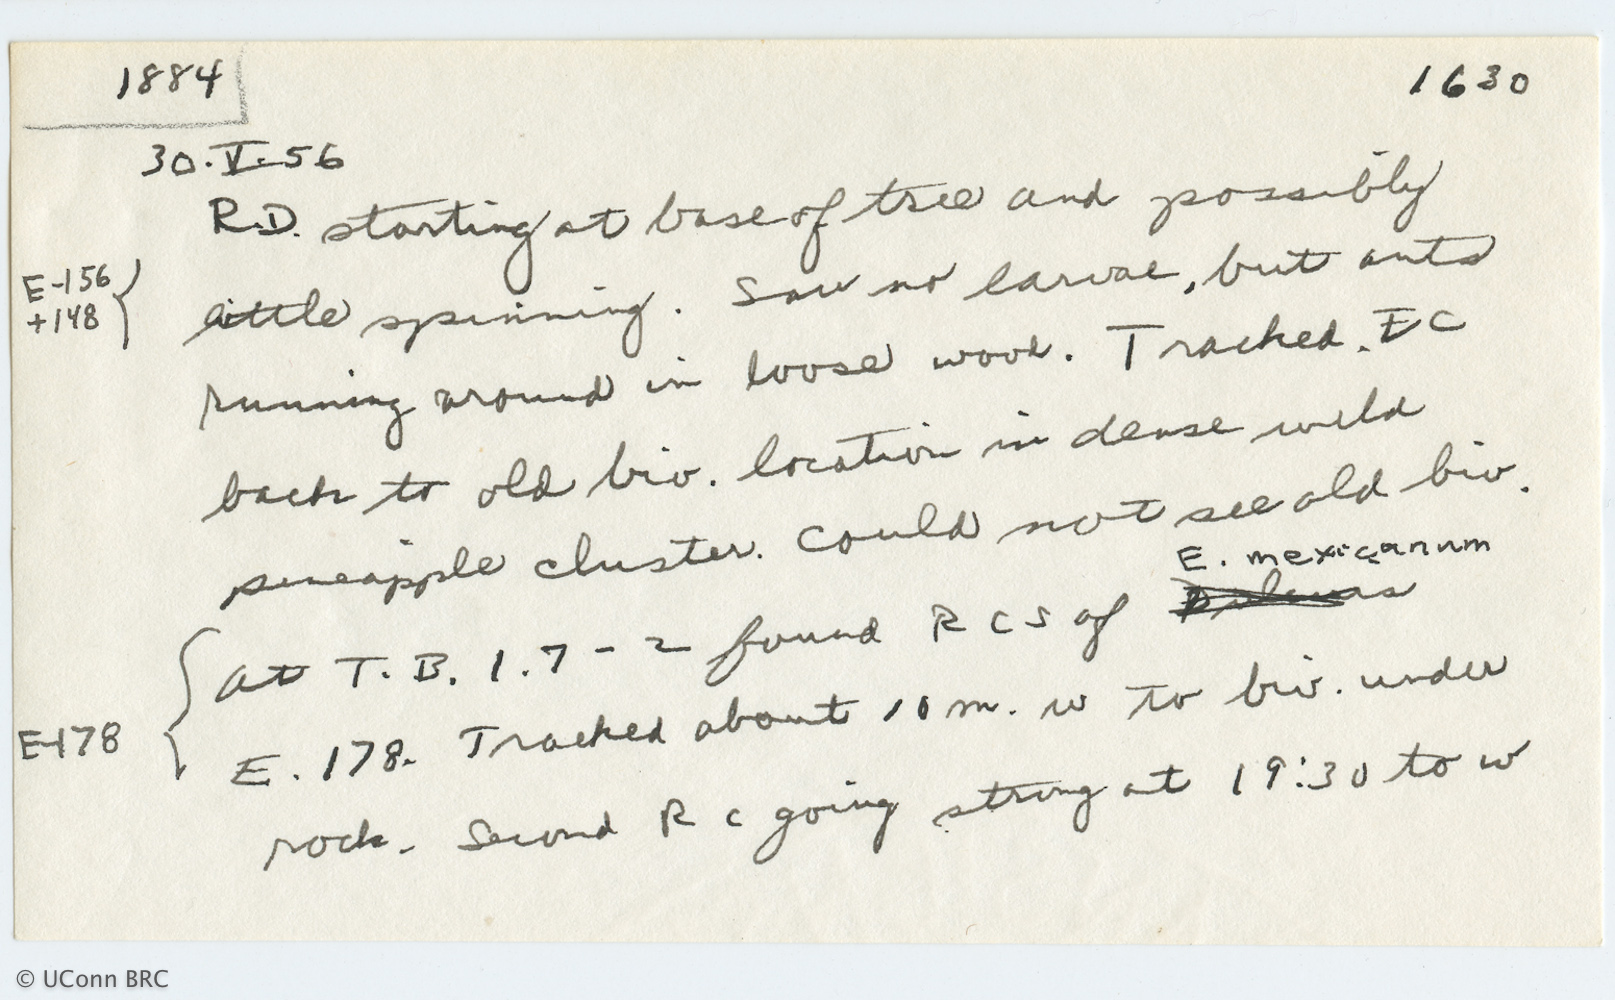 1884
1630
30.V.56
R.D. starting at base of tree and possibly
E-156
+148
little spinning. Saw no larvae, but ants
running around in loose wood. Tracked. EC
back to old biv. location in dense wild
pineapple cluster. Could not see old biv.
E. mexicanum
At T.B. 1.7-2 found RCS of
E. 178. Tracked about 10 m. W to biv. under
E-178
rock. Second R C going strong at 19:30 to W
© UConn BRC